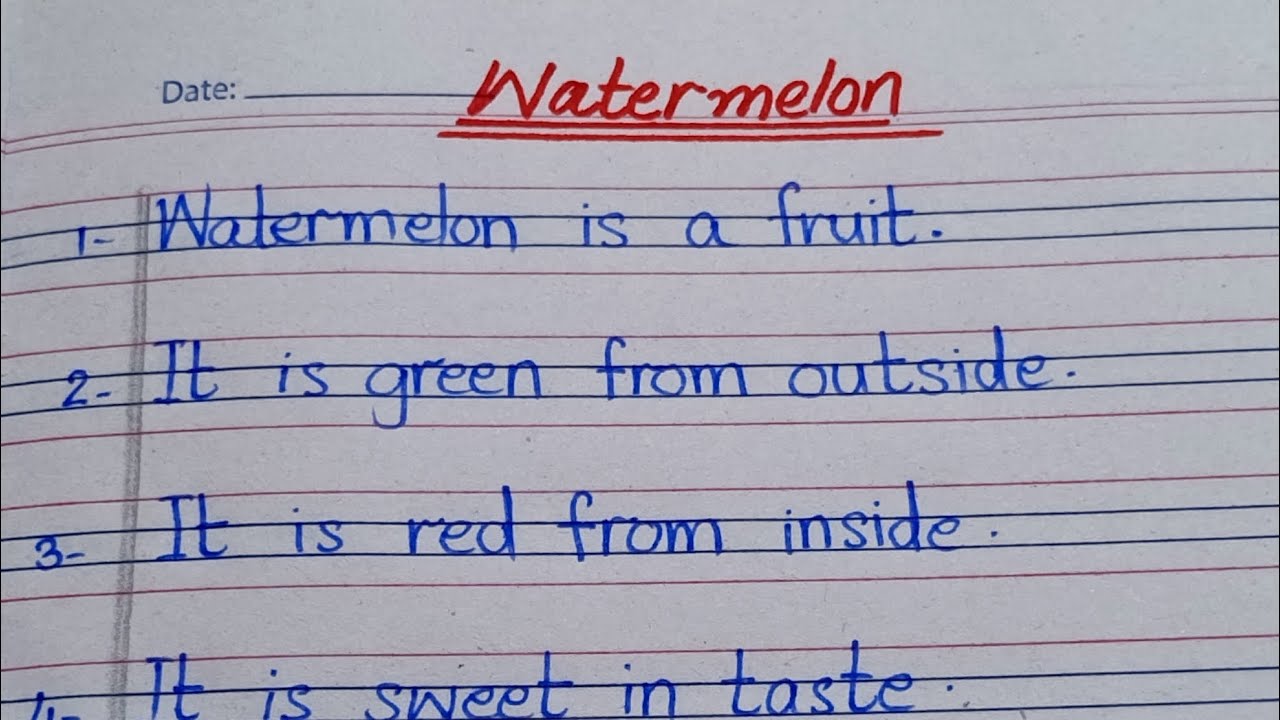 Date:
Watermelon
1- Watermelon is a fruit.
2- It is green from outside.
3- It is red from inside.
4- It is sweet in taste.